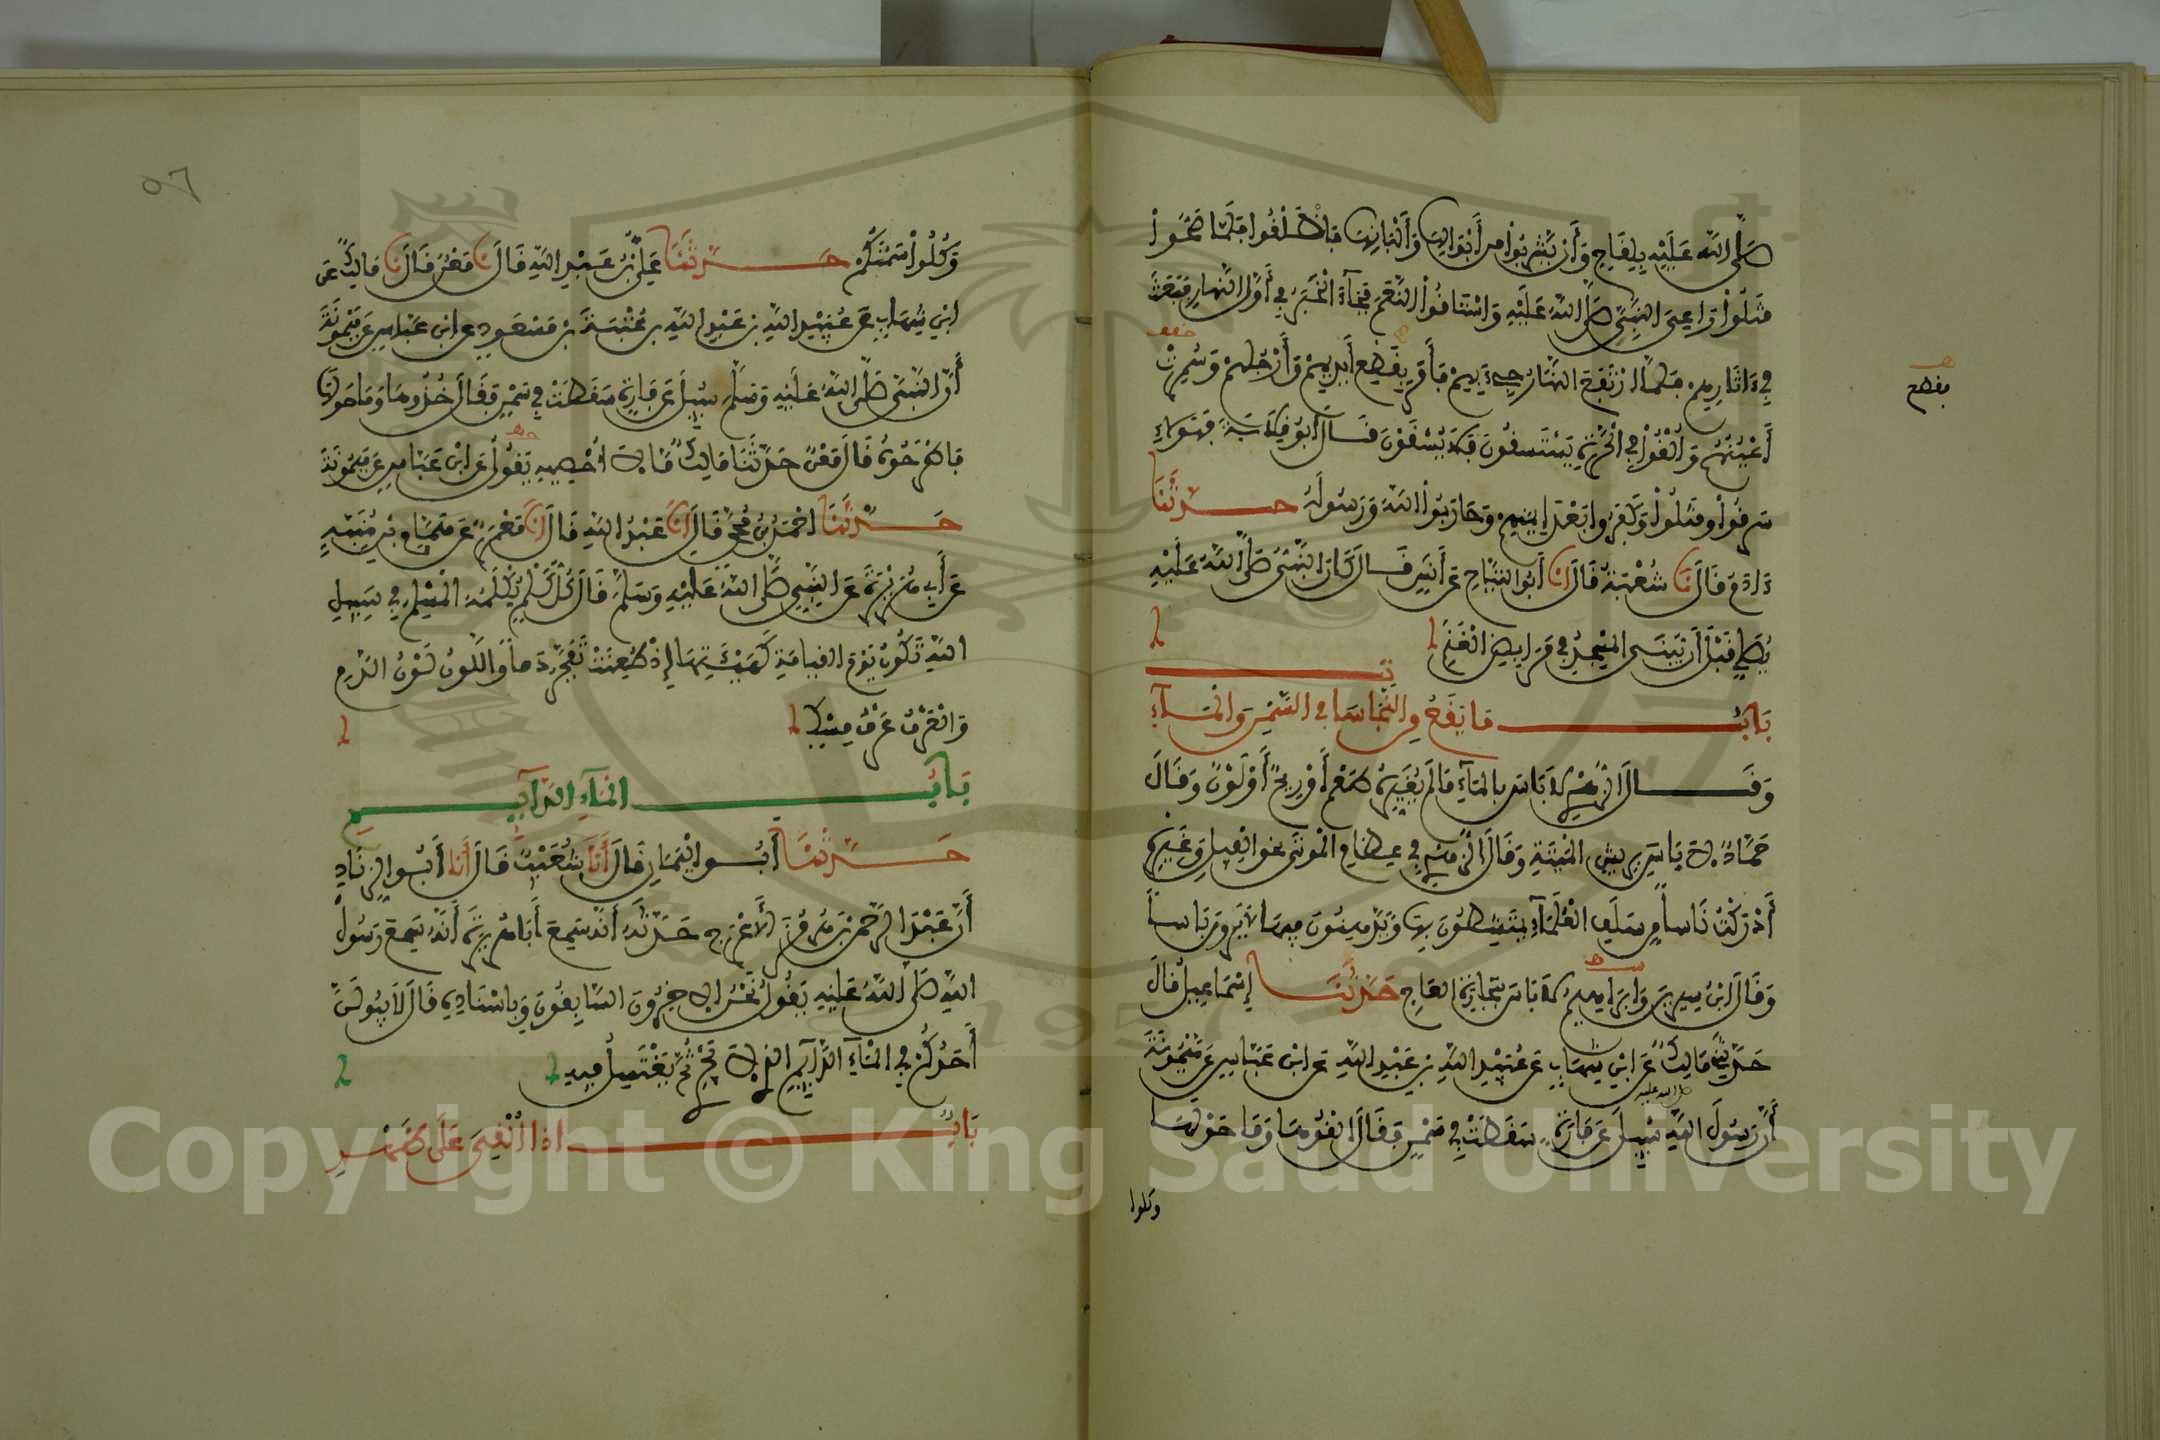 صَلَّى اللهُ عَلَيْهِ بِلِقَاحٍ وَأَنْ يَشْرَبُوا مِنْ أَبْوَالِهَا وَأَلْبَانِهَا فَانْطَلَقُوا فَلَمَّا صَحُّوا
قَتَلُوا رَاعِيَ النَّبِيِّ صَلَّى اللهُ عَلَيْهِ وَاسْتَاقُوا النَّعَمَ فَجَآءَ الْخَبَرُ فِي أَوَّلِ النَّهَارِ فَبَعَثَ
فِي ءَاثَارِهِمْ فَلَمَّا ارْتَفَعَ النَّهَارُ جِيءَ بِهِمْ فَأَمَرَ بِقَطْعِ أَيْدِيهِمْ وَأَرْجُلِهِمْ وَسُمِرَتْ
فقطع
أَعْيُنُهُمْ وَأُلْقُوا فِي الْحَرَّةِ يَسْتَسْقُونَ فَلَا يُسْقَوْنَ قَالَ أَبُو قِلَابَةَ فَهَؤُلَاءِ
سَرَقُوا وَقَتَلُوا وَكَفَرُوا بَعْدَ إِيمَانِهِمْ وَحَارَبُوا اللهَ وَرَسُولَهُ حَدَّثَنَا
ءَادَمُ قَالَ نَا شُعْبَةُ قَالَ انَا أَبُو التَّيَّاحِ عَنْ أَنَسٍ قَالَ كَانَ النَّبِيُّ صَلَّى اللهُ عَلَيْهِ
يُصَلِّي قَبْلَ أَنْ يُبْنَى الْمَسْجِدُ فِي مَرَابِضِ الْغَنَمِ
بَابُ مَا يَقَعُ مِنَ النَّجَاسَاتِ فِي السَّمْنِ وَالْمَآءِ
وَقَالَ الزُّهْرِيُّ لَا بَأْسَ بِالْمَآءِ مَا لَمْ يُغَيِّرْهُ طَعْمٌ أَوْ رِيحٌ أَوْ لَوْنٌ وَقَالَ
حَمَّادٌ لَا بَأْسَ بِرِيشِ الْمَيْتَةِ وَقَالَ الزُّهْرِيُّ فِي عِظَامِ الْمَوْتَى نَحْوَ الْفِيلِ وَغَيْرِهِ
أَدْرَكْتُ نَاساً مِنْ سَلَفِ الْعُلَمَآءِ يَمْتَشِطُونَ بِهَا وَيَدَّهِنُونَ فِيهَا لَا يَرَوْنَ بَأْساً
وَقَالَ ابْنُ سِيرِينَ وَإِبْرَاهِيمُ لَا بَأْسَ بِتِجَارَةِ الْعَاجِ حَدَّثَنَا إِسْمَاعِيلُ قَالَ
حَدَّثَنِي مَالِكٌ عَنِ ابْنِ شِهَابٍ عَنْ عُبَيْدِ اللهِ بْنِ عَبْدِ اللهِ عَنِ ابْنِ عَبَّاسٍ عَنْ مَيْمُونَةَ
أَنَّ رَسُولَ اللهِ صلى الله عليه سُئِلَ عَنْ فَأْرَةٍ سَقَطَتْ فِي سَمْنٍ فَقَالَ أَلْقُوهَا وَمَا حَوْلَهَا
وكلوا
٥٦
وَكُلُوا سَمْنَكُمْ حَدَّثَنَا عَلِيُّ بْنُ عَبْدِ اللهِ قَالَ نَا مَعْنٌ قَالَ نَا مَالِكٌ عَنِ
ابْنِ شِهَابٍ عَنْ عُبَيْدِ اللهِ بْنِ عَبْدِ اللهِ بْنِ عُتْبَةَ بْنِ مَسْعُودٍ عَنِ ابْنِ عَبَّاسٍ عَنْ مَيْمُونَةَ
أَنَّ النَّبِيَّ صَلَّى اللهُ عَلَيْهِ وَسَلَّمَ سُئِلَ عَنْ فَأْرَةٍ سَقَطَتْ فِي سَمْنٍ فَقَالَ خُذُوهَا وَمَا حَوْلَهَا
فَاطْرَحُوهُ قَالَ مَعْنٌ حَدَّثَنَا مَالِكٌ مَا لَا أُحْصِيهِ يَقُولُ عَنِ ابْنِ عَبَّاسٍ عَنْ مَيْمُونَةَ
حَدَّثَنَا احْمَدُ بْنُ مُحَمَّدٍ قَالَ انَا عَبْدُ اللهِ قَالَ انَا مَعْمَرٌ عَنْ هَمَّامِ بْنِ مُنَبِّهٍ
عَنْ أَبِي هُرَيْرَةَ عَنِ النَّبِيِّ صَلَّى اللهُ عَلَيْهِ وَسَلَّمَ قَالَ كُلُّ كَلْمٍ يُكْلَمُهُ الْمُسْلِمُ فِي سَبِيلِ
اللهِ تَكُونُ يَوْمَ الْقِيَامَةِ كَهَيْئَتِهَا إِذْ طُعِنَتْ تَفَجَّرُ دَماً وَاللَّوْنُ لَوْنُ الدَّمِ
وَالْعَرْفُ عَرْفُ مِسْكٍ
بَابُ الْمَآءِ الدَّآئِمِ
حَدَّثَنَا أَبُو الْيَمَانِ قَالَ أَنَا شُعَيْبٌ قَالَ أَنَا أَبُو الزِّنَادِ
أَنَّ عَبْدَ الرَّحْمَنِ بْنَ هُرْمُزَ الْأَعْرَجَ حَدَّثَهُ أَنَّهُ سَمِعَ أَبَا هُرَيْرَةَ أَنَّهُ سَمِعَ رَسُولَ
اللهِ صَلَّى اللهُ عَلَيْهِ يَقُولُ نَحْنُ الْآخِرُونَ السَّابِقُونَ وَبِإِسْنَادِهِ قَالَ لَا يَبُولَنَّ
أَحَدُكُمْ فِي الْمَآءِ الدَّآئِمِ الَّذِي لَا يَجْرِي ثُمَّ يَغْتَسِلُ فِيهِ
بَابُ إِذَا أُلْقِيَ عَلَى ظَهْرِ